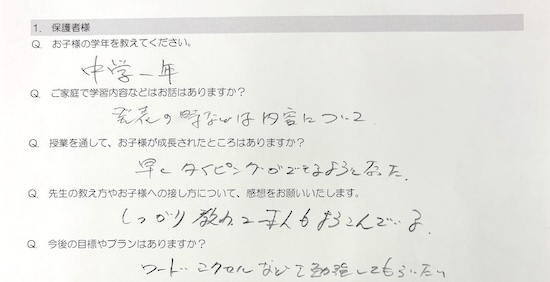 1. 保護者様
Q. お子様の学年を教えてください。
中学一年
Q. ご家庭で学習内容などはお話はありますか?
発表の時などは内容について
Q. 授業を通して、お子様が成長されたところはありますか?
早くタイピングができるようになった.
Q. 先生の教え方やお子様への接し方について、感想をお願いいたします。
しっかり教わって本人もよろこんでいる.
Q. 今後の目標やプランはありますか?
ワード エクセルなどで勉強してもらいたい